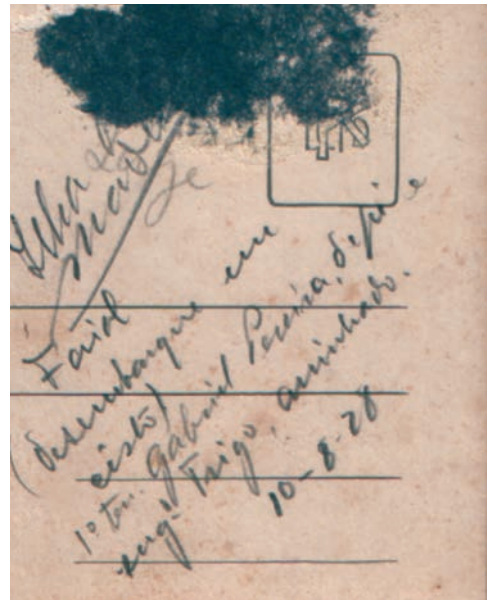 Ilha da
Madeira
Faial
(desembarque em
cisto)
1º ten. Gabriel Pereira,
engº Trigo, aninhado.
10-8-28